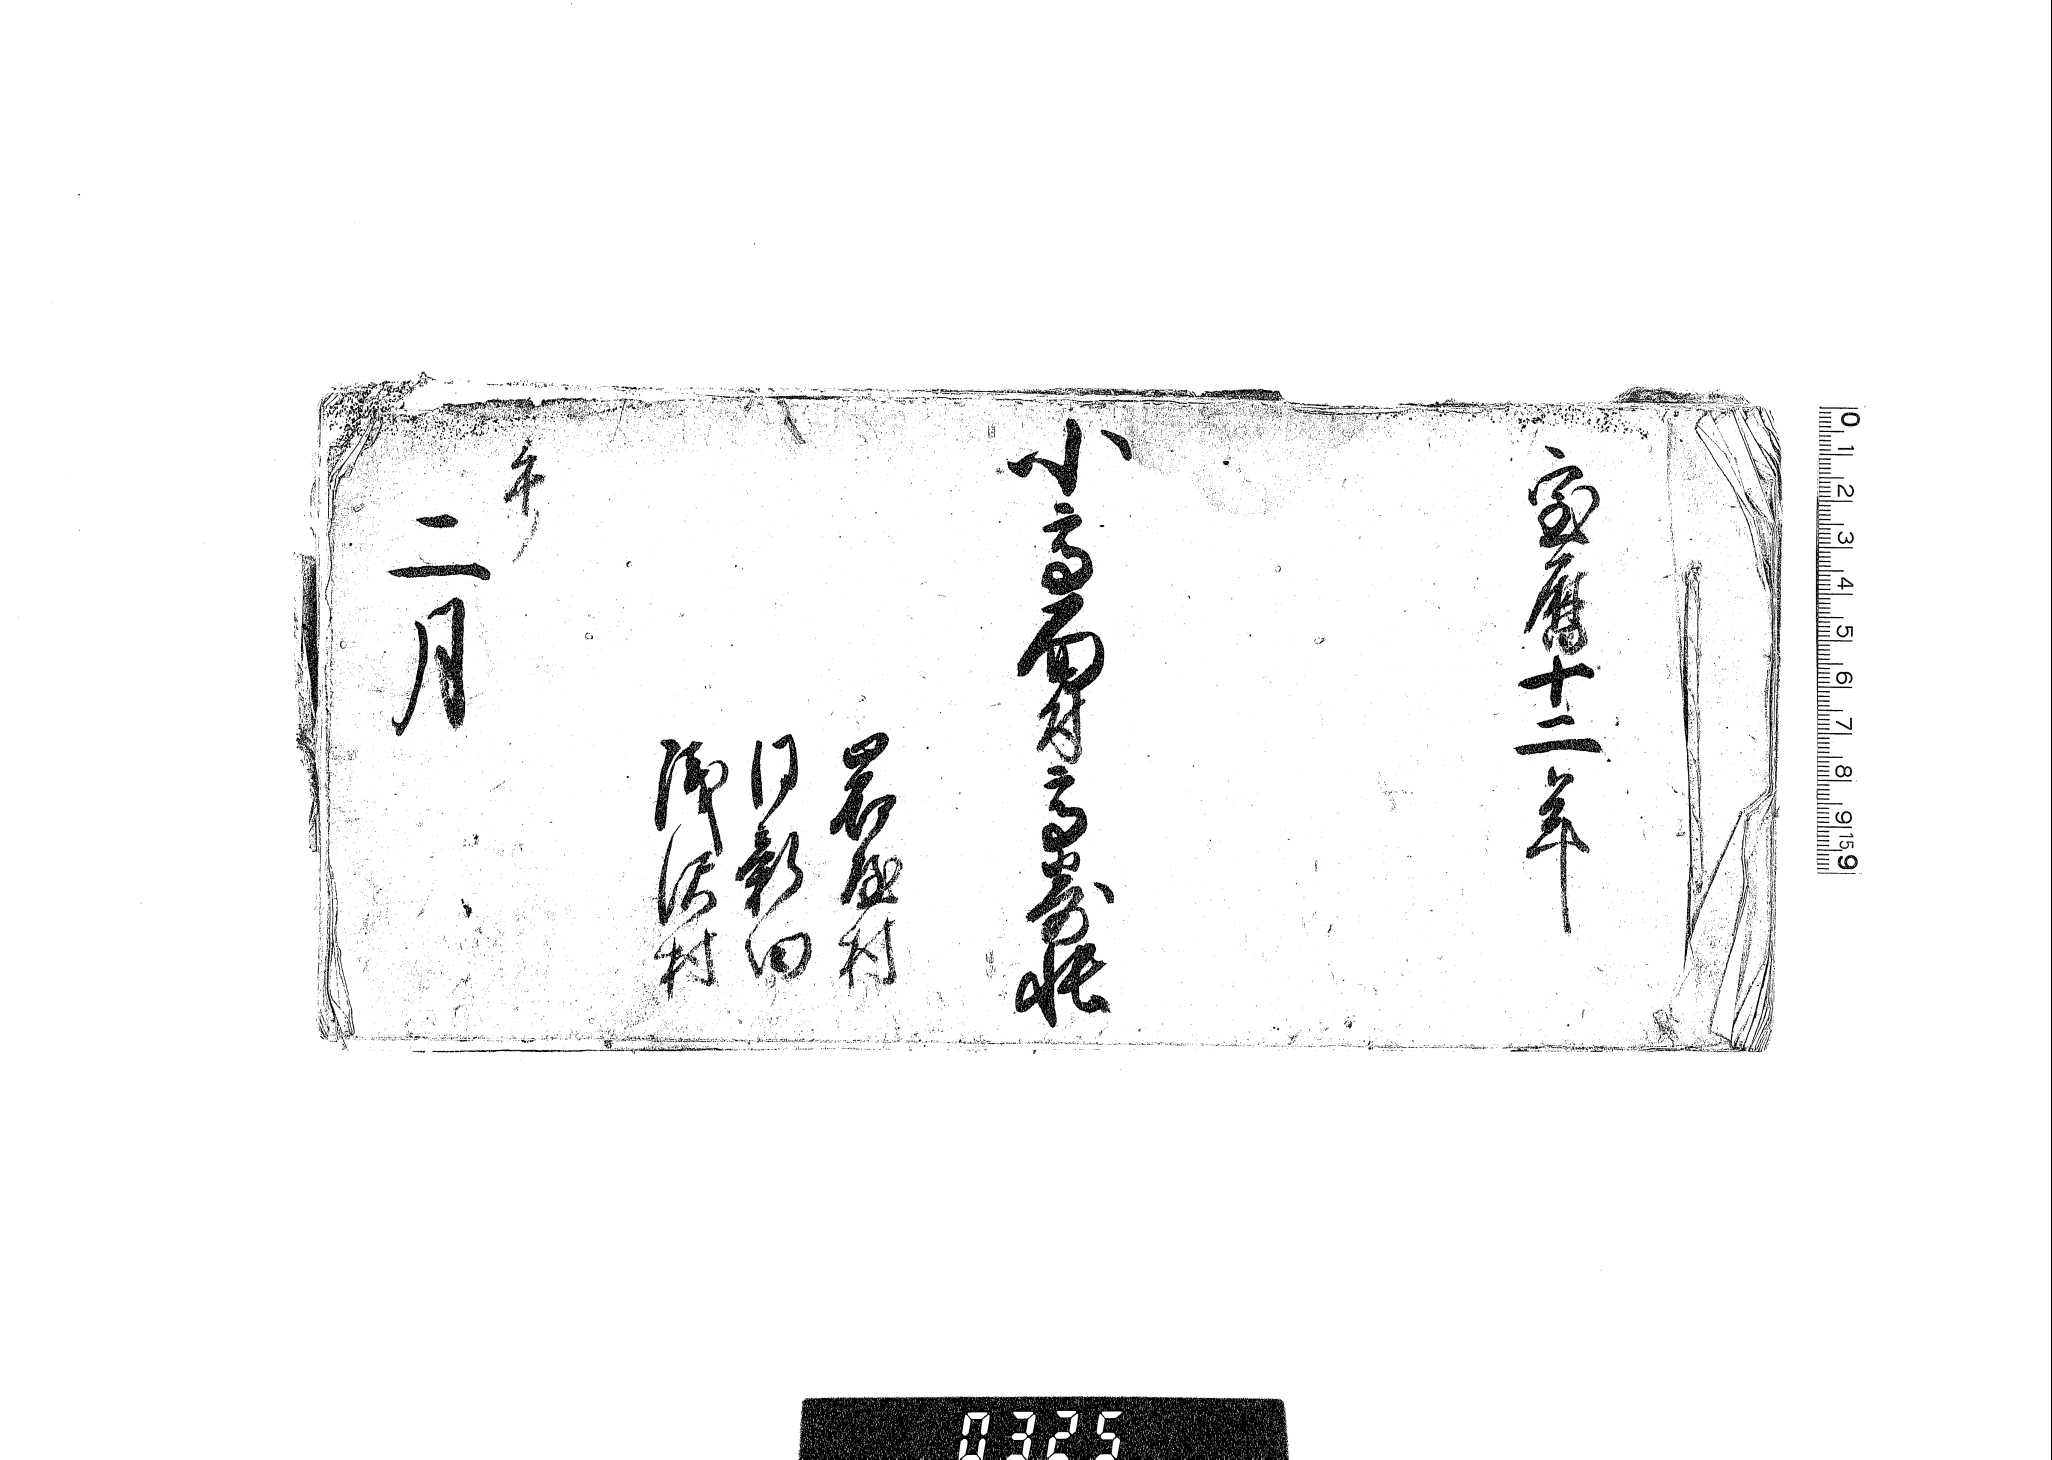 宝暦十二年
小高面付高寄帳
岩屋村
同新田
浅沢村
二月
0325
0 1 2 3 4 5 6 7 8 9 15 9